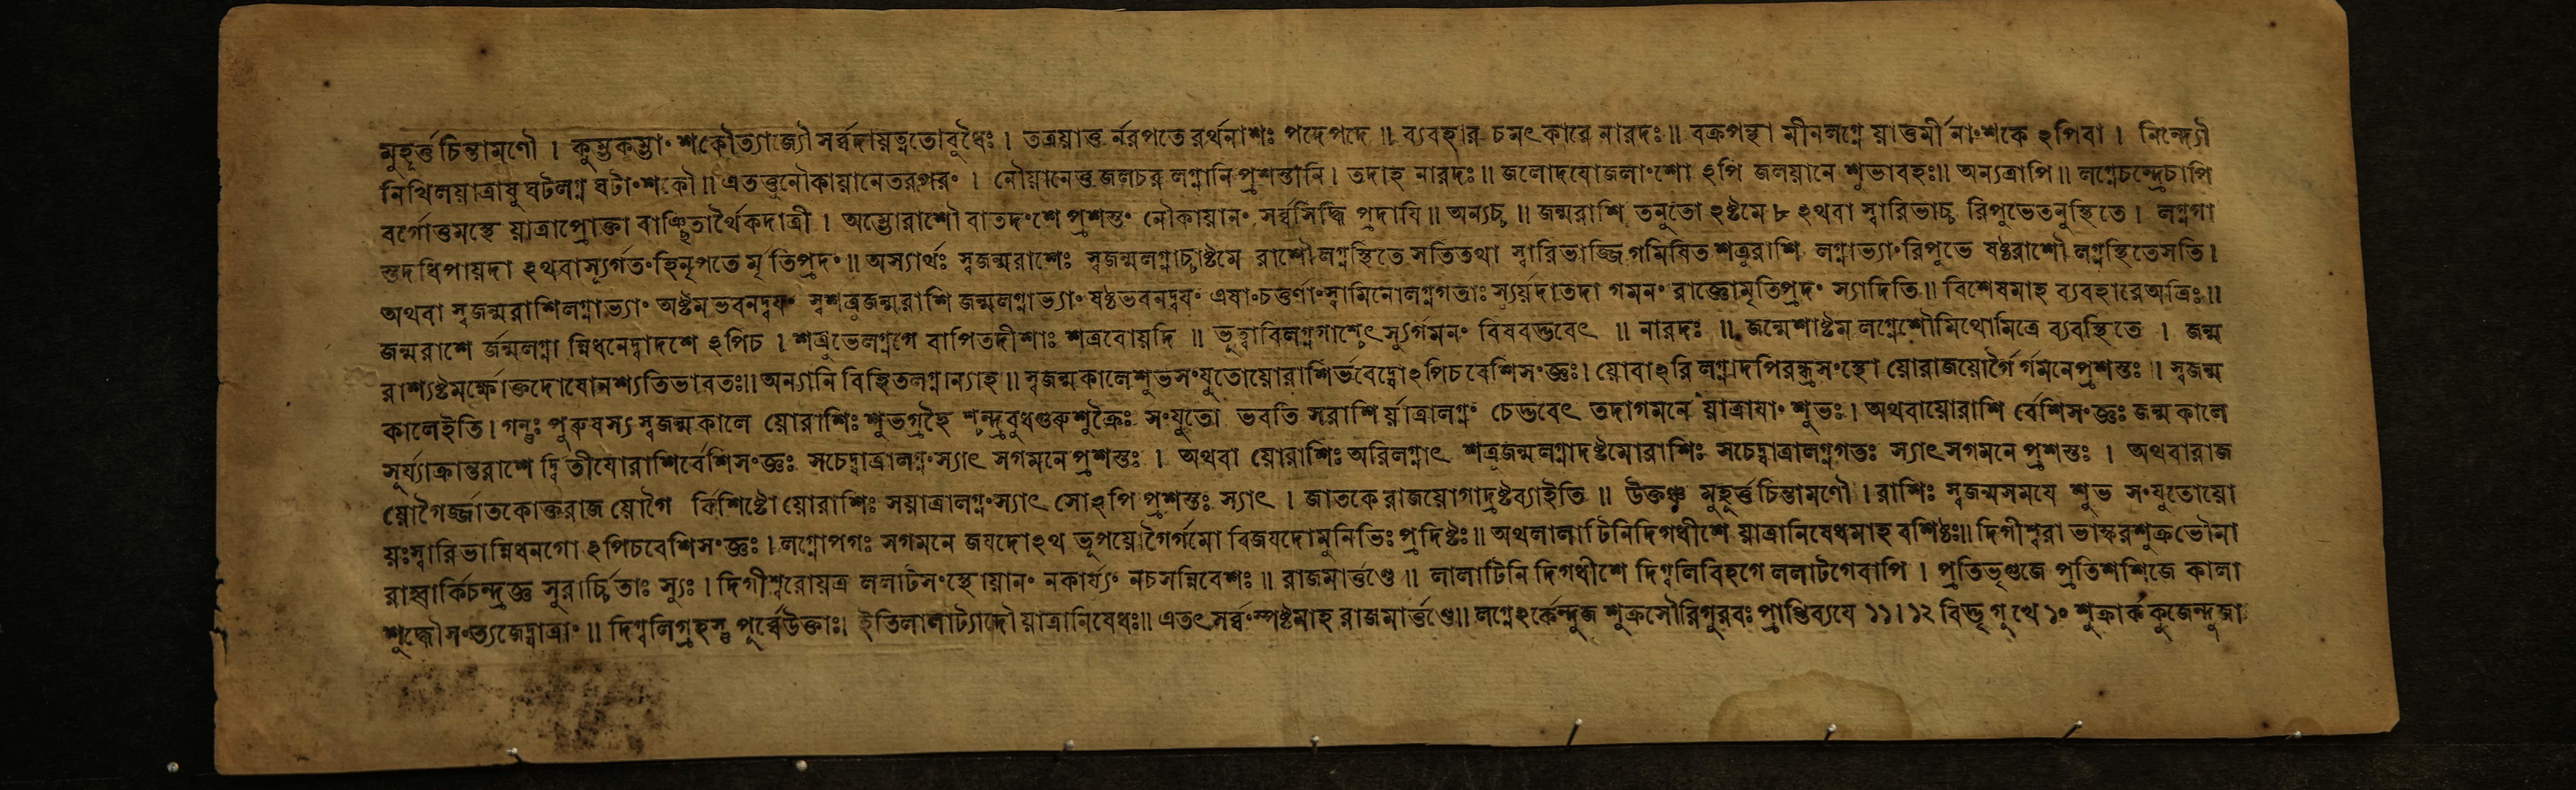 মুহূর্ত্তচিন্তামণৌ । কুম্ভকম্ভাংশকৌত্যাজ্যৌ সর্ব্বদায়ত্নতোবুধৈঃ । তত্রয়াত্তু র্নরপতে রর্থনাশঃ পদেপদে ॥ ব্যবহার চমৎকারে নারদঃ ॥ বক্রপন্থা মীনলগ্নে য়াত্তর্মীনাংশকে ঽপিবা । নিন্দ্যৌ
নিখিলয়াত্রাষু ঘটলগ্ন ঘটাংশকৌ ॥ এতত্তুনৌকায়ানেতরপরং । নৌয়ানেত্তু জলচর লগ্নানি প্রশস্তানি । তদাহ নারদঃ ॥ জলোদযোজলাংশো ঽপি জলয়ানে শুভাবহঃ ॥ অন্যত্রাপি ॥ লগ্নেচন্দ্রেচাপি
বর্গোত্তমস্থে য়াত্রাপ্রোক্তা বাঞ্ছিতার্থৈকদাত্রী । অম্ভোরাশৌ বাতদংশে প্রশস্তং নৌকায়ানং সর্ব্বসিদ্ধি প্রদাযি ॥ অন্যচ্চ ॥ জন্মরাশি তনুতো ঽষ্টমে ৮ ঽথবা স্বারিভাচ্চ রিপুভেতনুস্থিতে । লগ্নগা
স্তদধিপায়দা ঽথবাস্যূর্গতংহিনৃপতে র্মৃতিপ্রদং ॥ অস্যার্থঃ স্বজন্মরাশেঃ স্বজন্মলগ্নাচ্চাষ্টমে রাশৌলগ্নস্থিতে সতিতথা স্বারিভাজ্জিগমিষিত শত্রুরাশি লগ্নাভ্যাংরিপুভে ষষ্ঠরাশৌ লগ্নস্থিতেসতি ।
অথবা স্বজন্মরাশিলগ্নাভ্যাং অষ্টমভবনদ্বযং স্বশত্রুজন্মরাশি জন্মলগ্নাভ্যাং ষষ্ঠভবনদ্বযং এষাংচতুর্ণাংস্বামিনোলগ্নগতাঃ স্যুর্য়দাতদা গমনং রাজ্ঞোমৃতিপ্রদং স্যাদিতি ॥ বিশেষমাহ ব্যবহারেঅত্রিঃ ॥
জন্মরাশে র্জন্মলগ্না ন্নিধনেদ্বাদশে ঽপিচ । শত্রুভেলগ্নগে বাপিতদীশাঃ শত্রবোয়দি ॥ ভূত্বাবিলগ্নগাশ্চেৎস্যুর্গমনং বিষবদ্ভবেৎ ॥ নারদঃ ॥ জন্মেশাষ্টম লগ্নেশৌমিথোমিত্রে ব্যবস্থিতে । জন্ম
রাশ্যষ্টমর্ক্ষোক্তদোষোনশ্যতিভাবতঃ ॥ অন্যানি বিহিতলগ্নান্যাহ ॥ স্বজন্মকালেশুভসংযুতোয়োরাশির্ভবেদ্বোঽপিচবেশিসংজ্ঞঃ । য়োবাঽরি লগ্নাদপিরন্ধ্রসংস্থো য়োরাজয়োগৈ র্গমনেপ্রশস্তঃ ॥ স্বজন্ম
কালেইতি । গন্তুঃ পুরুষস্য স্বজন্মকালে য়োরাশিঃ শুভগ্রহৈ শ্চন্দ্রবুধগুরুশুক্রৈঃ সংযুতো ভবতি সরাশি র্য়াত্রালগ্নং চেদ্ভবেৎ তদাগমনে য়াত্রাযাং শুভঃ । অথবায়োরাশি র্বেশিসংজ্ঞঃ জন্মকালে
সূর্য্যাক্রান্তরাশে র্দ্বিতীযোরাশির্বেশিসংজ্ঞঃ সচেদ্যাত্রালগ্নংস্যাৎ সগমনে প্রশস্তঃ । অথবা য়োরাশিঃ অরিলগ্নাৎ শত্রুজন্মলগ্নাদষ্টমোরাশিঃ সচেদ্যাত্রালগ্নগতঃ স্যাৎসগমনে প্রশস্তঃ । অথবারাজ
য়োগৈর্জ্জাতকোক্তরাজ য়োগৈ র্বিশিষ্টো য়োরাশিঃ সয়াত্রালগ্নংস্যাৎ সোঽপি প্রশস্তঃ স্যাৎ । জাতকে রাজয়োগাদ্রষ্টব্যাইতি ॥ উক্তঞ্চ মুহূর্ত্তচিন্তামণৌ । রাশিঃ স্বজন্মসমযে শুভ সংযুতোয়ো
য়ঃস্বারিভান্নিধনগো ঽপিচবেশিসংজ্ঞঃ । লগ্নোপগঃ সগমনে জযদোঽথ ভূপয়োগৈর্গমো বিজযদোমুনিভিঃ প্রদিষ্টঃ ॥ অথলালাটিনিদিগধীশে য়াত্রানিষেধমাহ বশিষ্ঠঃ ॥ দিগীশ্বরা ভাস্করশুক্রভৌমা
রাহ্বার্কিচন্দ্রজ্ঞ সুরার্চ্চিতাঃ স্যুঃ । দিগীশ্বরোয়ত্র ললাটসংস্থোয়ানং নকার্য্যং নচসন্নিবেশঃ ॥ রাজমার্ত্তণ্ডে ॥ লালাটিনি দিগধীশে দিগ্বলিবিহগে ললাটগেবাপি । প্রতিভৃগুজে প্রতিশশিজে কালা
শুদ্ধৌসংত্যজেদ্যাত্রাং ॥ দিগ্বলিগ্রহস্তু পূর্ব্বেউক্তাঃ । ইতিলালাট্যাদৌ য়াত্রানিষেধঃ ॥ এতৎসর্ব্বংস্পষ্টমাহ রাজমার্ত্তণ্ডে ॥ লগ্নেঽর্কেন্দুজ শুক্রসৌরিগুরবঃ প্রাপ্তিব্যযে ১১ । ১২ বিদ্ভৃগূ খে ১০ শুক্রার্ক কুজেন্দুজা